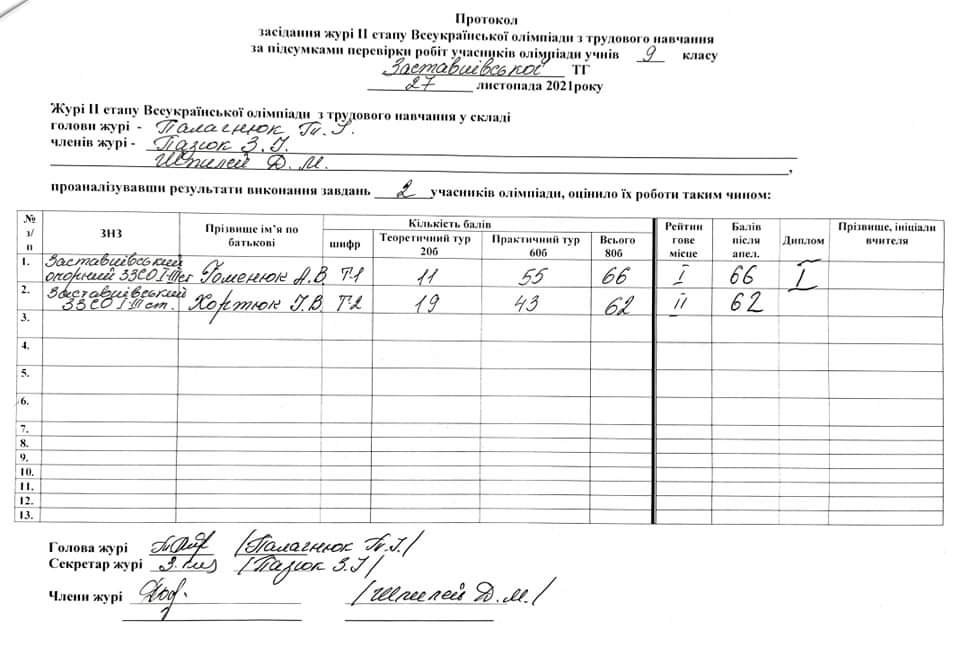 Протокол
засідання журі ІІ етапу Всеукраїнської олімпіади з трудового навчання
за підсумками перевірки робіт учасників олімпіади учнів 9 класу
Заставнівської ТГ
27 листопада 2021року
Журі ІІ етапу Всеукраїнської олімпіади з трудового навчання у складі
голови журі - Палагнюк Т. І.
членів журі - Пазюк З. І.
Шпилей Д. М.
проаналізувавши результати виконання завдань 2 учасників олімпіади, оцінило їх роботи таким чином:
№ з/п ЗНЗ Прізвище ім’я по батькові Кількість балів Рейтин гове місце Балів після апел. Диплом Прізвище, ініціали вчителя
шифр Теоретичний тур 20б Практичний тур 60б Всього 80б
1. Заставнівський опорний ЗЗСО І-ІІІст Гоменюк А.В. Т-1 11 55 66 І 66 І
2. Заставнівський ЗЗСО І-ІІІ ст. Хортюк І.В. Т-2 19 43 62 ІІ 62
3.
4.
5.
6.
7.
8.
9.
10.
11.
12.
13.
Голова журі /Палагнюк Т.І./
Секретар журі /Пазюк З.І/
Члени журі /Шпилей Д.М./